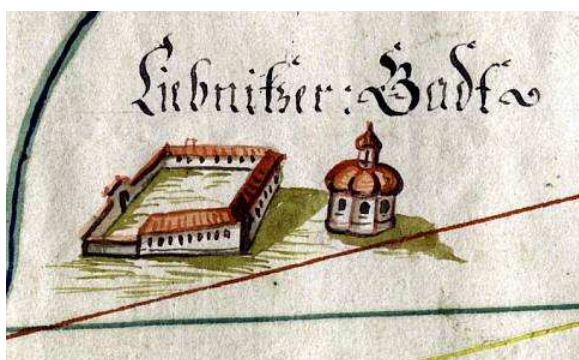 Liebnitzer: Badt